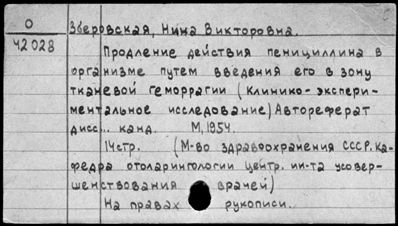 О
42028
Зверовская, Нина Викторовна.
Продление действия пенициллина в
организме путем введения его в зону
тканевой геморрагии (Клинико-экспери-
ментальное исследование) Автореферат
дисс... канд. М, 1954.
14стр. (М-во здравоохранения СССР. Ка-
федра отоларингологии Центр. ин-та усовер-
шенствования врачей)
На правах рукописи.